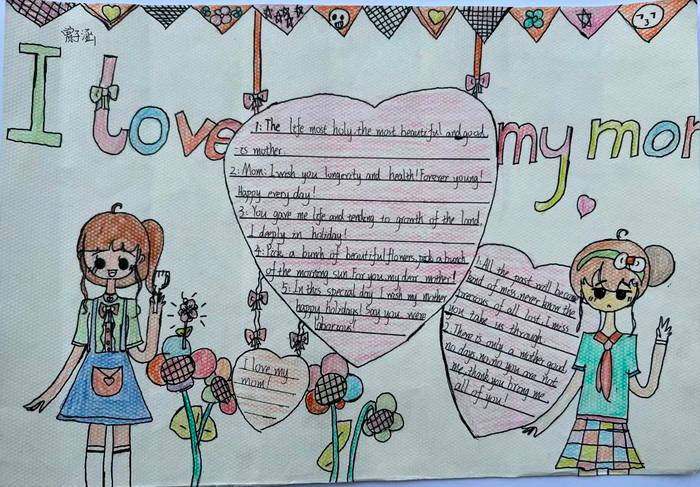 I love my mom
1: The life most holy the most beautiful and good
is mother.
2: Mom: I wish you longevity and health! Forever young!
Happy every day!
3: You gave me life and tending to growth of the land.
I deeply in holiday!
4: Pick a bunch of beautiful flowers, pick a bunch
of the morning sun for you, my dear mother!
5: In this special day, I wish my mother
happy holidays! Say you were
laborious!
I love my
mom!
1: All the past will become
kind of miss, never know the
precious of all lost. I miss
you take us through
2: There is only a mother good
no days, no, no you are not
me, thank you bring me
all of you!